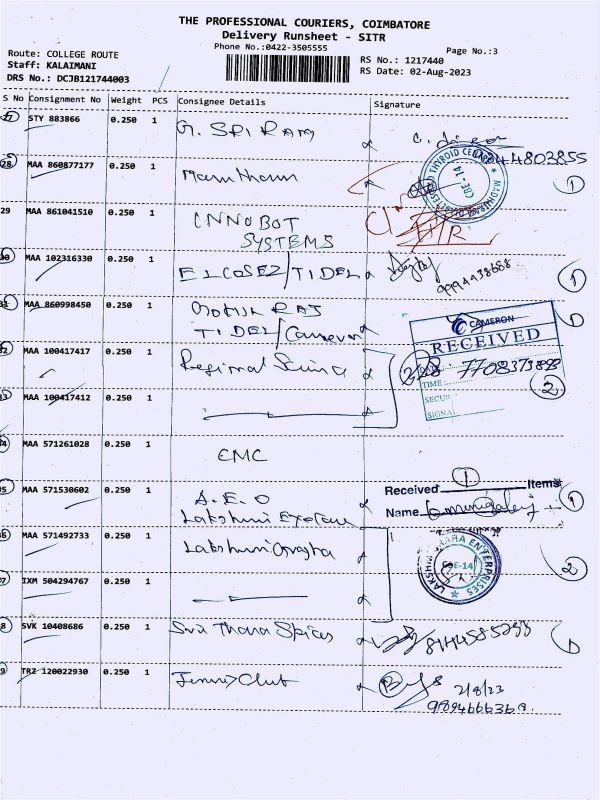 THE PROFESSIONAL COURIERS, COIMBATORE
Delivery Runsheet - SITR
Phone No.:0422-3505555
Page No.:3
Route: COLLEGE ROUTE
Staff: KALAIMANI
DRS No.: DCJB121744003
RS No.: 1217440
RS Date: 02-Aug-2023
S No Consignment No Weight PCS Consignee Details Signature
27 STY 883866 0.250 1 G. SRI RAM
28 MAA 860877177 0.250 1
THIROID CE
CBE-14
1
29 MAA 861041510 0.250 1 INNOBOT
SYSTEMS
30 MAA 102316330 0.250 1 ELCOSEZ/TIDEL
9994438688
1
31 MAA 860998450 0.250 1 RAJ
TIDEL/Cameron
1
CAMERON
RECEIVED
32 MAA 100417417 0.250 1 Regional Science
7708373898
TIME:
2
33 MAA 100417412 0.250 1
SECUR
SIGNA
34 MAA 571261028 0.250 1 CMC
35 MAA 571530602 0.250 1 A.E.O
Lakshmi
Received 1 Items
Name
1
36 MAA 571492733 0.250 1 Lakshmi
ENTERPRISES
CBE-14
2
37 IXM 504294767 0.250 1
38 SVK 10408686 0.250 1 Sri Thara Spices
8144585298
1
39 TRZ 120022930 0.250 1 Club
2/8/23